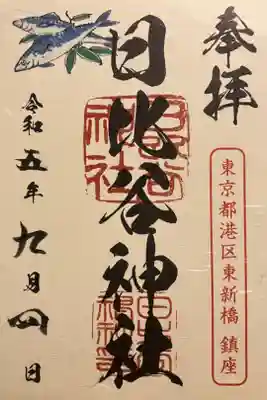 奉拝
東京都港区東新橋 鎮座
日比谷神社
令和五年九月四日